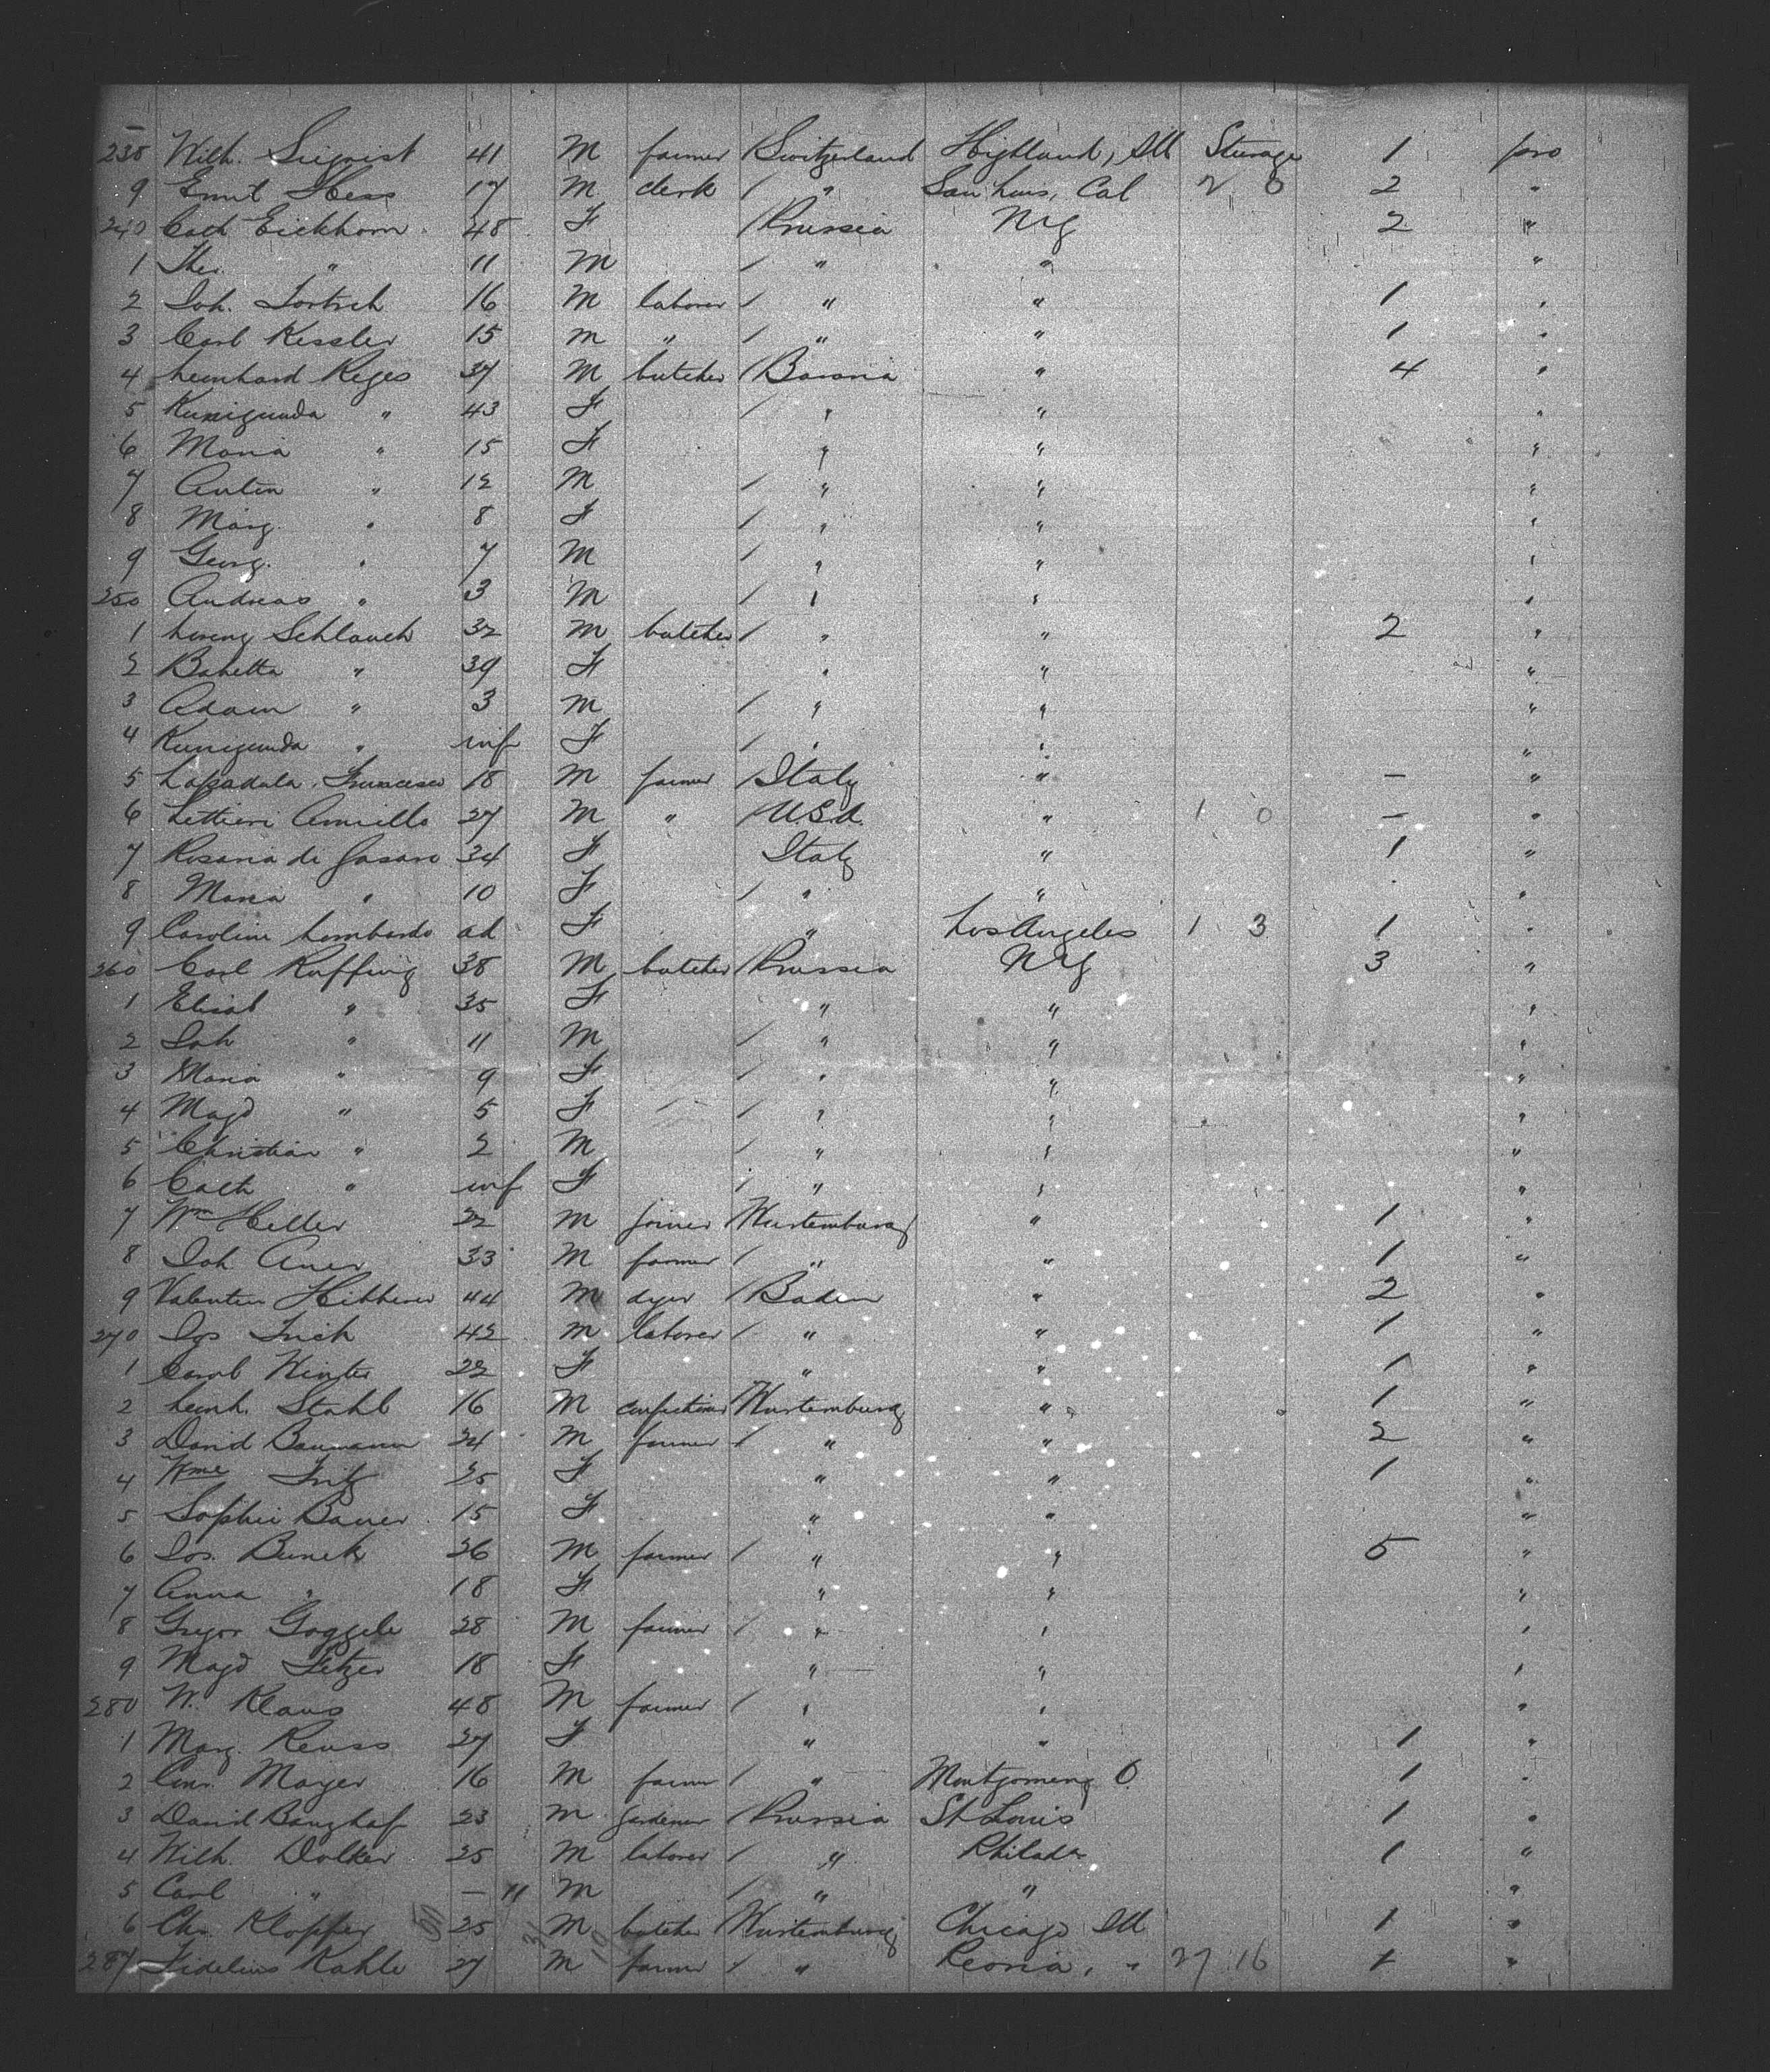 238 Wilh. 41 M farmer Switzerland Highland, Ill Steerage 1 pro
9 Emil Hess 17 M clerk / " San Luis, Cal 2 0 2 "
240 Cath Eickhorn 48 F Prussia NY 2 "
1 " 11 M / " " "
2 Joh. 16 M laborer / " " 1 "
3 Carl Kessler 15 M " / " " 1 "
4 Leonhard Reges 37 M butcher / Bavaria " 4 "
5 Kunigunda " 43 F / " " "
6 Maria " 15 F " " "
7 Anton " 12 M / " " "
8 Marg. " 8 F / " " "
9 Georg. " 7 M / " " "
250 Andreas " 3 M / " " "
1 Lorenz Schlauch 32 M butcher / " " 2 "
2 Babetta " 39 F " " "
3 Adam " 3 M / " " "
4 Kunigunda " inf F / " " "
5 Lapadula, Francesco 18 M farmer / Italy " – "
6 Lettieri Aniello 27 M " / U.S.A. " 1 0 – "
7 Rosaria di 34 F Italy " 1 "
8 Maria " 10 F / " " "
9 Caroline Lombardo ad F " Los Angeles 1 3 1 "
260 Carl Ruffing 38 M butcher / Prussia NY 3 "
1 Elisab " 35 F " " "
2 Joh " 11 M / " " "
3 Maria " 9 F / " " "
4 Magd " 5 F / " " "
5 Christian " 2 M / " " "
6 Cath " inf F / " " "
7 Wm Heller 22 M joiner / Wurtemburg " 1 "
8 Joh Auer 33 M farmer / " " 1 "
9 Valentin 44 M dyer / Baden " 2 "
270 Jos 42 M laborer / " " 1 "
1 Carol Winter 22 F " " 1 "
2 Leonh. Stahl 16 M confectioner Wurtemburg " 1 "
3 David Baumann 24 M farmer / " " 2 "
4 Wme Fritz 25 F " " 1 "
5 Sophie Bauer 15 F " " "
6 Jos. Bunck 26 M farmer / " " 5 "
7 Anna " 18 F " " "
8 Gregor Goggele 28 M farmer / " " "
9 Magd Fetzer 18 F " " "
280 W. Klaus 48 M farmer / " " "
1 Marg. Reuss 27 F " " 1 "
2 Mayer 16 M farmer / " Montgomery O. 1 "
3 David Banghaf 23 M gardener / Prussia St Louis 1 "
4 Wilh. Dolker 25 M laborer / " Philada 1 "
5 Carl " – 11 M / " " "
6 Chr. Klopfer 25 M butcher / Wurtemburg Chicago Ill 1 "
287 Fidelius Kahle 27 M farmer / " Peoria, " 27 16 1 "